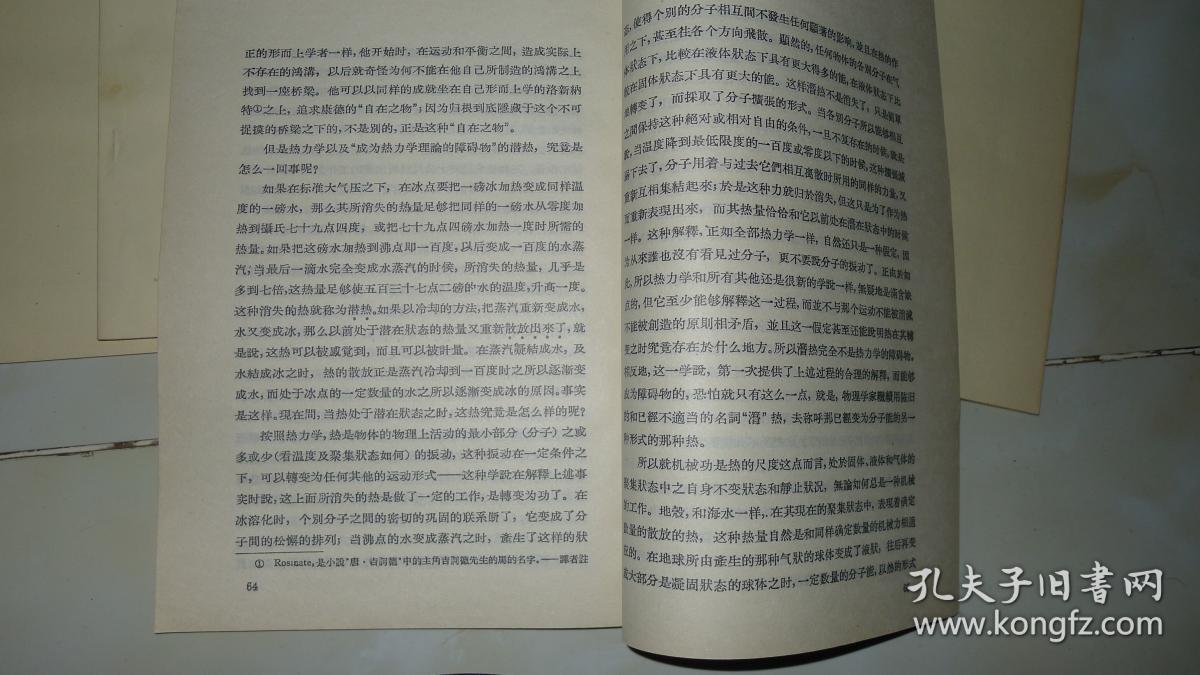 正的形而上学者一样，他开始时，在运动和平衡之間，造成实际上
不存在的鸿溝，以后就奇怪为何不能在他自己所制造的鸿溝之上
找到一座桥梁。他可以以同样的成就坐在自己形而上学的洛新納
特①之上，追求康德的“自在之物”；因为归根到底隱藏于这个不可
捉摸的桥梁之下的，不是別的，正是这种“自在之物”。
但是热力学以及“成为热力学理論的障碍物”的潛热，究竟是
怎么一回事呢？
如果在标准大气压之下，在冰点要把一磅冰加热变成同样温
度的一磅水，那么其所消失的热量足够把同样的一磅水从零度加
热到攝氏七十九点四度，或把七十九点四磅水加热一度时所需的
热量。如果把这磅水加热到沸点即一百度，以后变成一百度的水蒸
汽；当最后一滴水完全变成水蒸汽的时候，所消失的热量，几乎是
多到七倍，这热量足够使五百三十七点二磅的水的温度，升高一度。
这种消失的热就称为潜热。如果以冷却的方法，把蒸汽重新变成水，
水又变成冰，那么以前处于潜在狀态的热量又重新散放出來了，就
是說，这热可以被感覚到，而且可以被計量。在蒸汽凝結成水，及
水結成冰之时，热的散放正是蒸汽冷却到一百度时之所以逐漸变
成水，而处于冰点的一定数量的水之所以逐漸变成冰的原因。事实
是这样。现在間，当热处于潜在狀态之时，这热究竟是怎么样的呢？
按照热力学，热是物体的物理上活动的最小部分（分子）之或
多或少（看温度及聚集狀态如何）的振动，这种振动在一定条件之
下，可以轉变为任何其他的运动形式——这种学說在解釋上述事
实时說，这上面所消失的热是做了一定的工作，是轉变为功了。在
冰溶化时，个別分子之間的密切的巩固的联系断了，它变成了分
子間的松懈的排列；当沸点的水变成蒸汽之时，產生了这样的狀
① Rosinate，是小說“唐·吉訶德”中的主角吉訶德先生的馬的名字。——譯者註
64
态，使得个別的分子相互間不發生任何顯著的影响，並且在热的作
用之下，甚至往各个方向飛散。顯然的，任何物体的各別分子在气
体狀态下，比較在液体狀态下具有更大得多的能，在液体狀态下比
較在固体狀态下具有更大的能。这样潛热不是消失了，只是簡單
地轉变了，而採取了分子擴張的形式。当各別分子所以能够相互
之間保持这种絕对或相对自由的条件，一旦不复存在的时候，就是
說，当温度降到最低限度的一百度或零度以下的时候，这种擴張
下去了，分子用着与过去它們相互离散时所用的同样的力量，又
重新互相集結起來；於是这种力就归於消失，但这只是为了作为热
而重新表現出來，而其热量恰恰和它以前处在潛在狀态中的时候
一样。这种解釋，正如全部热力学一样，自然还只是一种假定，因
为从來誰也沒有看見过分子，更不要說分子的振动了。正由於如
此，所以热力学和所有其他还是很新的学說一样，無疑地是滿含缺
点的，但它至少能够解釋这一过程，而並不与那个运动不能被消滅
不能被創造的原則相矛盾，並且这一假定甚至还能說明热在其轉
变之时究竟存在於什么地方。所以潛热完全不是热力学的障碍物。
相反地，这一学說，第一次提供了上述过程的合理的解釋，而能够
成为障碍物的，恐怕就只有这么一点，就是，物理学家繼續用陈旧
的和已經不適当的名詞“潛”热，去称呼那已經变为分子能的另一
种形式的那种热。
所以就机械功是热的尺度这点而言，处於固体、液体和气体的
聚集狀态中之自身不变狀态和靜止狀况，無論如何总是一种机械
的工作。地殼，和海水一样，在其現在的聚集狀态中，表現着满定
数量的散放的热，这种热量自然是和同样确定数量的机械力相适
应的。在地球所由產生的那种气狀的球体变成了液狀，往后再变
成大部分是凝固狀态的球体之时，一定数量的分子能，以热的形式
孔夫子旧書网
www.kongfz.com